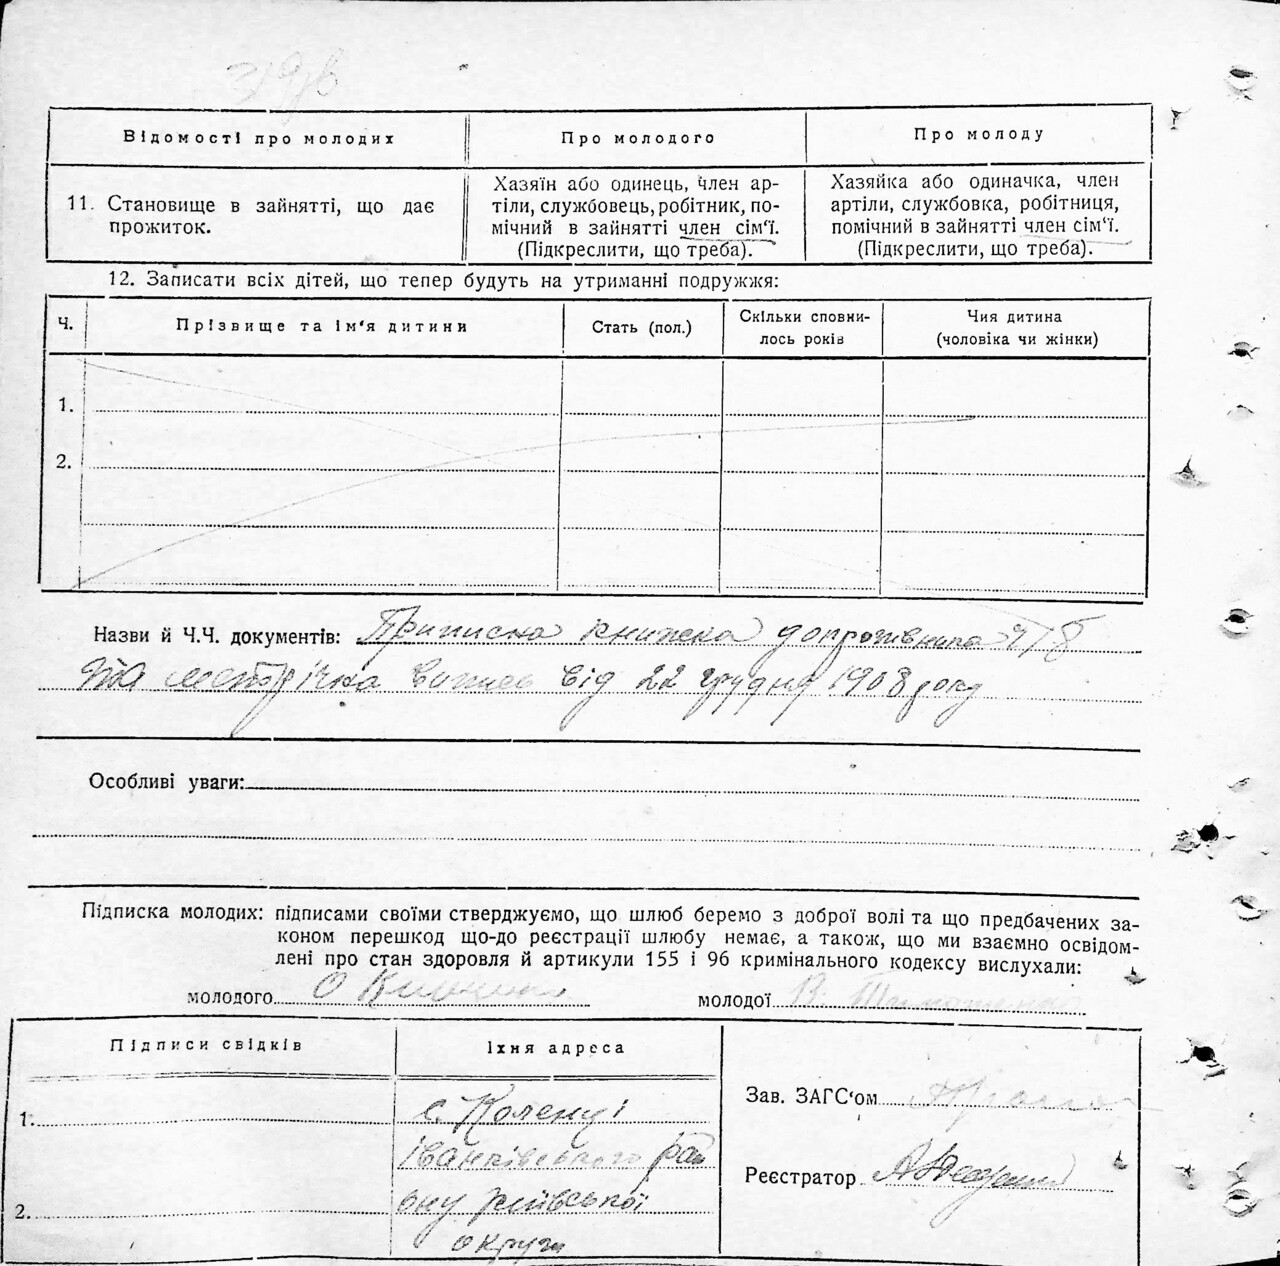 Відомості про молодих
Про молодого
Про молоду
11. Становище в зайнятті, що дає
прожиток.
Хазяїн або одинець, член ар-
тіли, службовець, робітник, по-
мічний в зайнятті член сім‘ї.
(Підкреслити, що треба).
Хазяйка або одиначка, член
артіли, службовка, робітниця,
помічний в зайнятті член сім‘ї.
(Підкреслити, що треба).
12. Записати всіх дітей, що тепер будуть на утриманні подружжя:
Ч.
Прізвище та ім‘я дитини
Стать (пол.)
Скільки сповни-
лось років
Чия дитина
(чоловіка чи жінки)
1.
2.
Назви й Ч.Ч. документів: Приписна книжка допризивника
та метрична випись від 22 грудня 1908 року
Особливі уваги:
Підписка молодих: підписами своїми стверджуємо, що шлюб беремо з доброї волі та що предбачених за-
коном перешкод що-до реєстрації шлюбу немає, а також, що ми взаємно освідом-
лені про стан здоровля й артикули 155 і 96 кримінального кодексу вислухали:
молодого
молодої
Підписи свідків
Їхня адреса
1.
с. Коленці
іванківського рай
ону київської
2.
округи
Зав. ЗАГС‘ом
Реєстратор